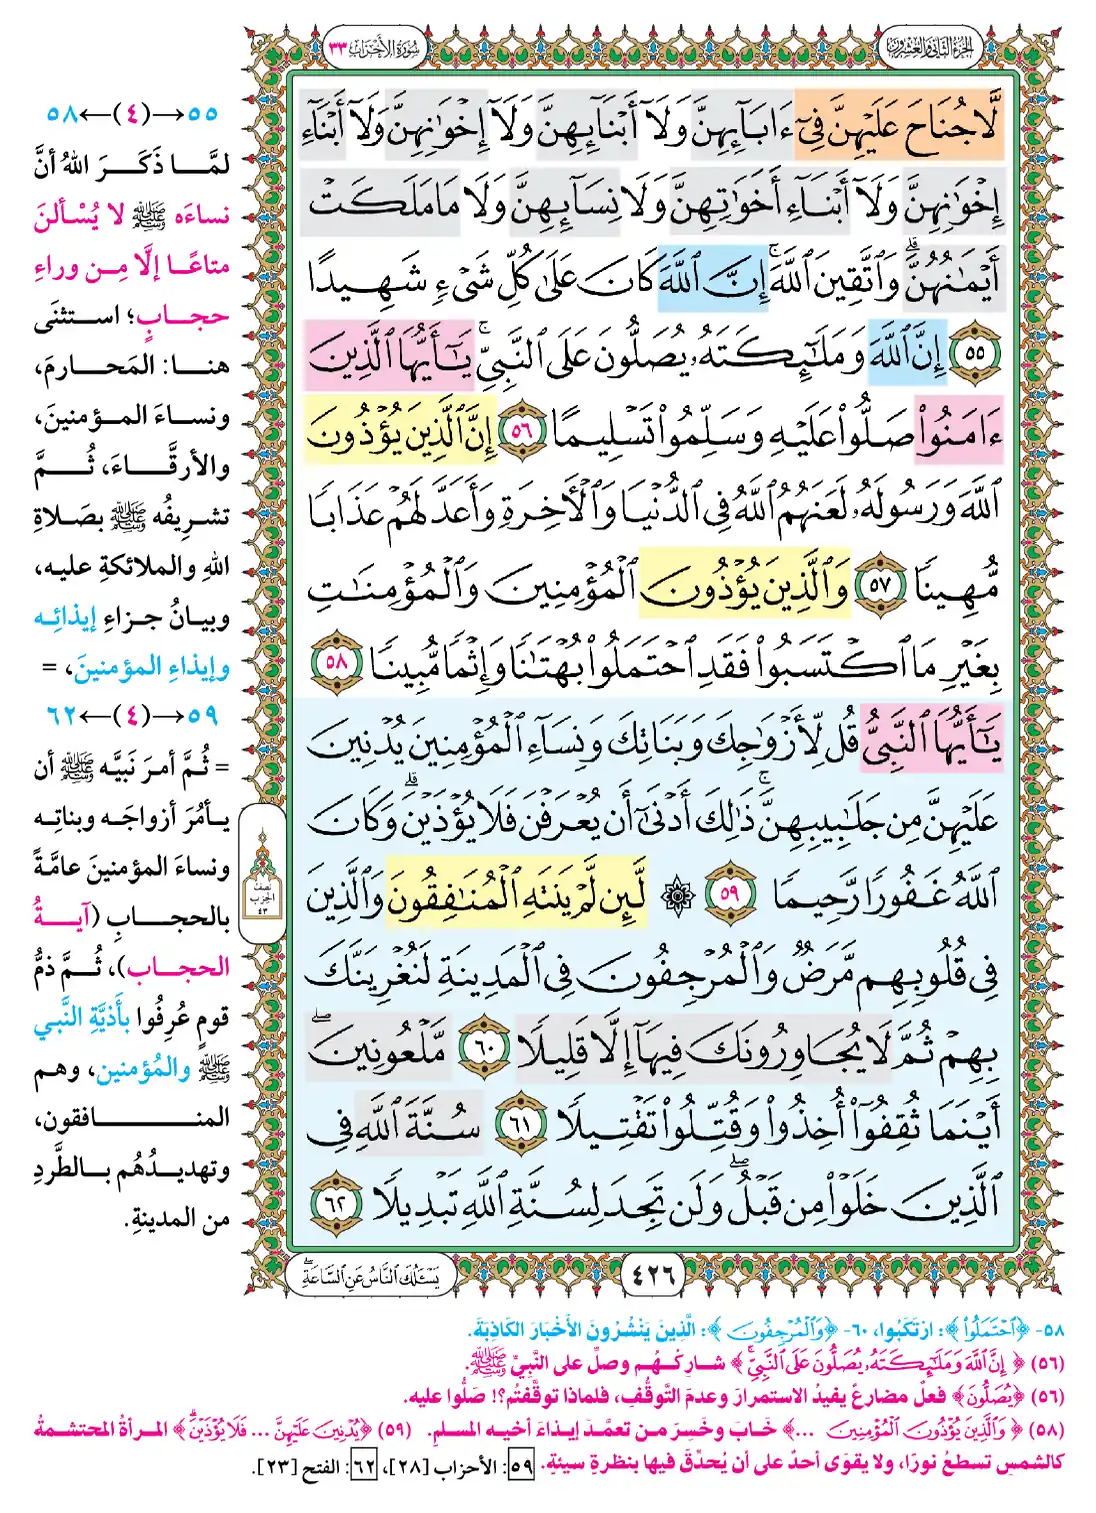 الجزء الثاني والعشرون
سورة الأحزاب ٣٣
لَّا جُنَاحَ عَلَيْهِنَّ فِىٓ ءَابَآئِهِنَّ وَلَآ أَبْنَآئِهِنَّ وَلَآ إِخْوَٰنِهِنَّ وَلَآ أَبْنَآءِ
إِخْوَٰنِهِنَّ وَلَآ أَبْنَآءِ أَخَوَٰتِهِنَّ وَلَا نِسَآئِهِنَّ وَلَا مَا مَلَكَتْ
أَيْمَٰنُهُنَّ ۗ وَٱتَّقِينَ ٱللَّهَ ۚ إِنَّ ٱللَّهَ كَانَ عَلَىٰ كُلِّ شَىْءٍ شَهِيدًا
٥٥ إِنَّ ٱللَّهَ وَمَلَٰٓئِكَتَهُۥ يُصَلُّونَ عَلَى ٱلنَّبِىِّ ۚ يَٰٓأَيُّهَا ٱلَّذِينَ
ءَامَنُوا۟ صَلُّوا۟ عَلَيْهِ وَسَلِّمُوا۟ تَسْلِيمًا ٥٦ إِنَّ ٱلَّذِينَ يُؤْذُونَ
ٱللَّهَ وَرَسُولَهُۥ لَعَنَهُمُ ٱللَّهُ فِى ٱلدُّنْيَا وَٱلْءَاخِرَةِ وَأَعَدَّ لَهُمْ عَذَابًا
مُّهِينًا ٥٧ وَٱلَّذِينَ يُؤْذُونَ ٱلْمُؤْمِنِينَ وَٱلْمُؤْمِنَٰتِ
بِغَيْرِ مَا ٱكْتَسَبُوا۟ فَقَدِ ٱحْتَمَلُوا۟ بُهْتَٰنًا وَإِثْمًا مُّبِينًا ٥٨
يَٰٓأَيُّهَا ٱلنَّبِىُّ قُل لِّأَزْوَٰجِكَ وَبَنَاتِكَ وَنِسَآءِ ٱلْمُؤْمِنِينَ يُدْنِينَ
عَلَيْهِنَّ مِن جَلَٰبِيبِهِنَّ ۚ ذَٰلِكَ أَدْنَىٰٓ أَن يُعْرَفْنَ فَلَا يُؤْذَيْنَ ۗ وَكَانَ
ٱللَّهُ غَفُورًا رَّحِيمًا ٥٩ ۞ لَّئِن لَّمْ يَنتَهِ ٱلْمُنَٰفِقُونَ وَٱلَّذِينَ
فِى قُلُوبِهِم مَّرَضٌ وَٱلْمُرْجِفُونَ فِى ٱلْمَدِينَةِ لَنُغْرِيَنَّكَ
بِهِمْ ثُمَّ لَا يُجَاوِرُونَكَ فِيهَآ إِلَّا قَلِيلًا ٦٠ مَّلْعُونِينَ ۖ
أَيْنَمَا ثُقِفُوٓا۟ أُخِذُوا۟ وَقُتِّلُوا۟ تَقْتِيلًا ٦١ سُنَّةَ ٱللَّهِ فِى
ٱلَّذِينَ خَلَوْا۟ مِن قَبْلُ ۖ وَلَن تَجِدَ لِسُنَّةِ ٱللَّهِ تَبْدِيلًا ٦٢
نصف
الحزب
٤٣
٤٢٦
يَسْـَٔلُكَ النَّاسُ عَنِ السَّاعَةِ ۖ
٥٥→(٤)←٥٨
لمَّا ذَكَرَ اللهُ أنَّ
نساءَه ﷺ لا يُسْألنَ
متاعًا إلَّا مِن وراءِ
حجابٍ؛ استثنَى
هنا: المَحارمَ،
ونساءَ المؤمنينَ،
والأرقَّاءَ، ثُمَّ
تشريفُه ﷺ بصَلاةِ
اللهِ والملائكةِ عليه،
وبيانُ جزاءِ إيذائِه
وإيذاءِ المؤمنينَ، =
٥٩→(٤)←٦٢
= ثُمَّ أمرَ نَبيَّه ﷺ أن
يأمُرَ أزواجَه وبناتِه
ونساءَ المؤمنينَ عامَّةً
بالحجابِ (آيةُ
الحجاب)، ثُمَّ ذمُّ
قومٍ عُرِفُوا بأَذيَّةِ النَّبي
ﷺ والمُؤمنين، وهم
المنافقون،
وتهديدُهُم بالطَّردِ
من المدينةِ.
٥٨- ﴿ٱحْتَمَلُوا۟﴾: ارْتَكَبُوا، ٦٠- ﴿وَٱلْمُرْجِفُونَ﴾: الَّذِينَ يَنْشُرُونَ الأَخْبَارَ الكَاذِبَةَ.
(٥٦) ﴿إِنَّ ٱللَّهَ وَمَلَٰٓئِكَتَهُۥ يُصَلُّونَ عَلَى ٱلنَّبِىِّ ۚ﴾ شاركْهُم وصلِّ على النَّبيِّ ﷺ.
(٥٦) ﴿يُصَلُّونَ﴾ فعلٌ مضارعٌ يفيدُ الاستمرارَ وعدمَ التَّوقُّفِ، فلماذا توقَّفتُم؟! صَلُّوا عليه.
(٥٨) ﴿وَٱلَّذِينَ يُؤْذُونَ ٱلْمُؤْمِنِينَ ...﴾ خَابَ وخَسِرَ من تعمَّدَ إيذاءَ أخيه المسلمِ. (٥٩) ﴿يُدْنِينَ عَلَيْهِنَّ ... فَلَا يُؤْذَيْنَ ۗ﴾ المرأةُ المحتشمةُ
كالشمسِ تسطعُ نورًا، ولا يقوَى أحدٌ على أن يُحدِّقَ فيها بنظرةٍ سيئةٍ. ٥٩: الأحزاب [٢٨]، ٦٢: الفتح [٢٣].